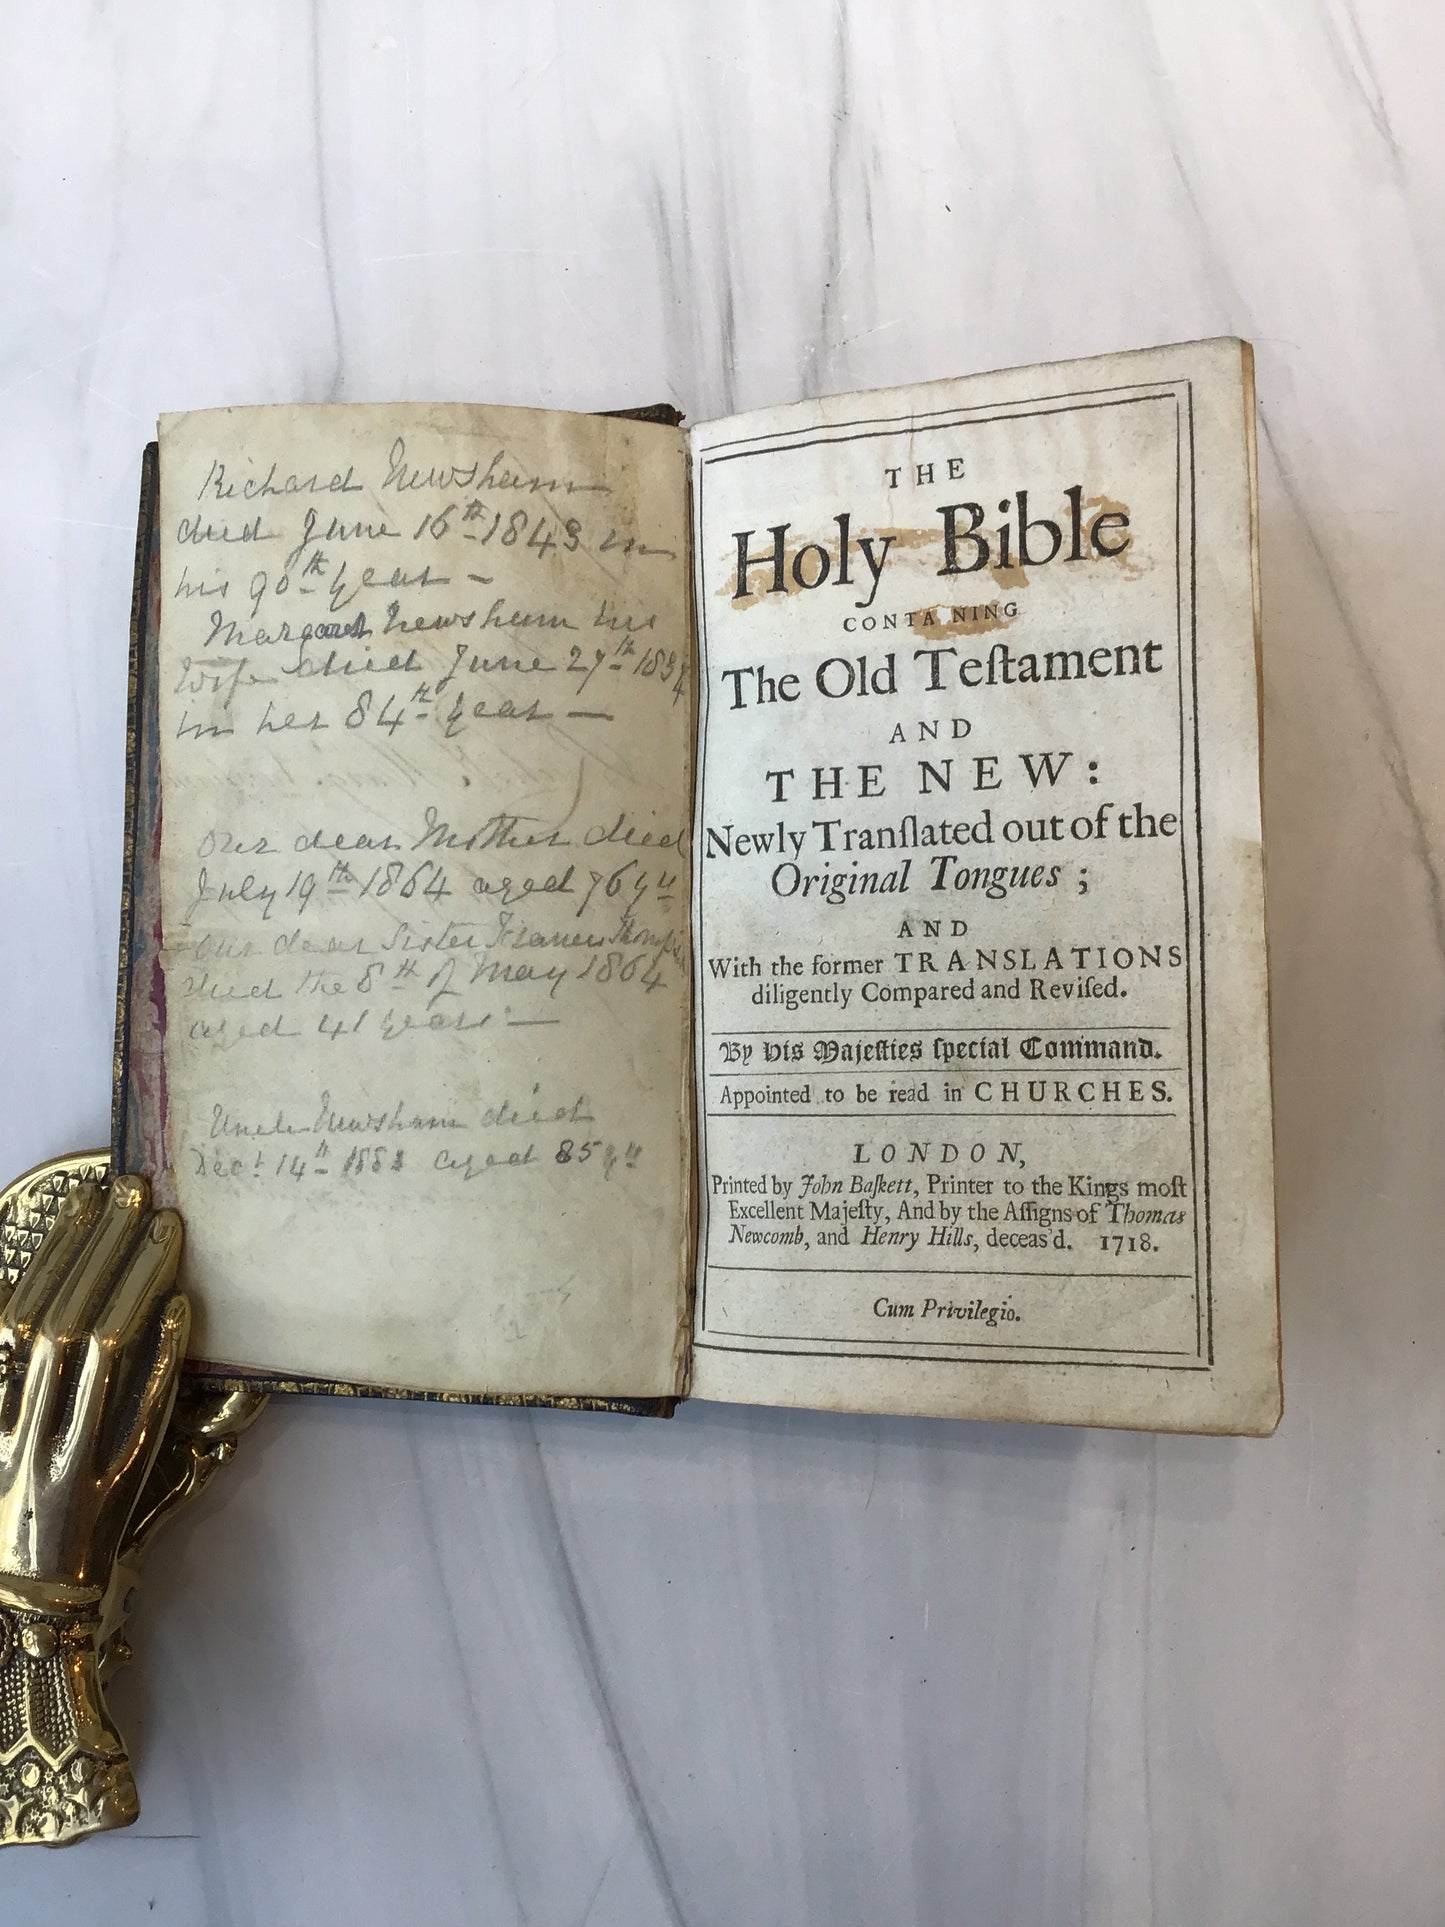 Richard Newsham
died June 16th 1843 in
his 90th year -
Margaret Newsham his
wife died June 27th 183
in her 84th year —
Our dear Mother died
July 19th 1864 aged 76 yrs
Our dear Sister Frances
died the 8th of May 1864
aged 41 years —
Uncle Newsham died
Decr 14th 1883 aged 85 yrs
THE
Holy Bible
CONTAINING
The Old Teſtament
AND
THE NEW:
Newly Tranſlated out of the
Original Tongues;
AND
With the former TRANSLATIONS
diligently Compared and Reviſed.
By His Majeſties ſpecial Command.
Appointed to be read in CHURCHES.
LONDON,
Printed by John Baſkett, Printer to the Kings moſt
Excellent Majeſty, And by the Aſſigns of Thomas
Newcomb, and Henry Hills, deceas'd. 1718.
Cum Privilegio.